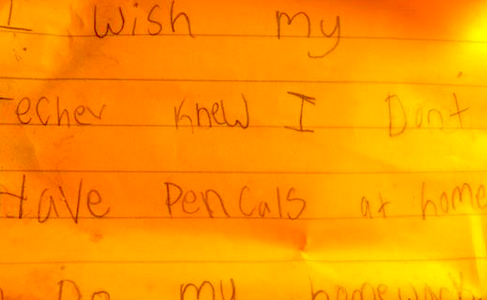 I wish my
Techer knew I Dont
Have Pencals at home
Do my homework